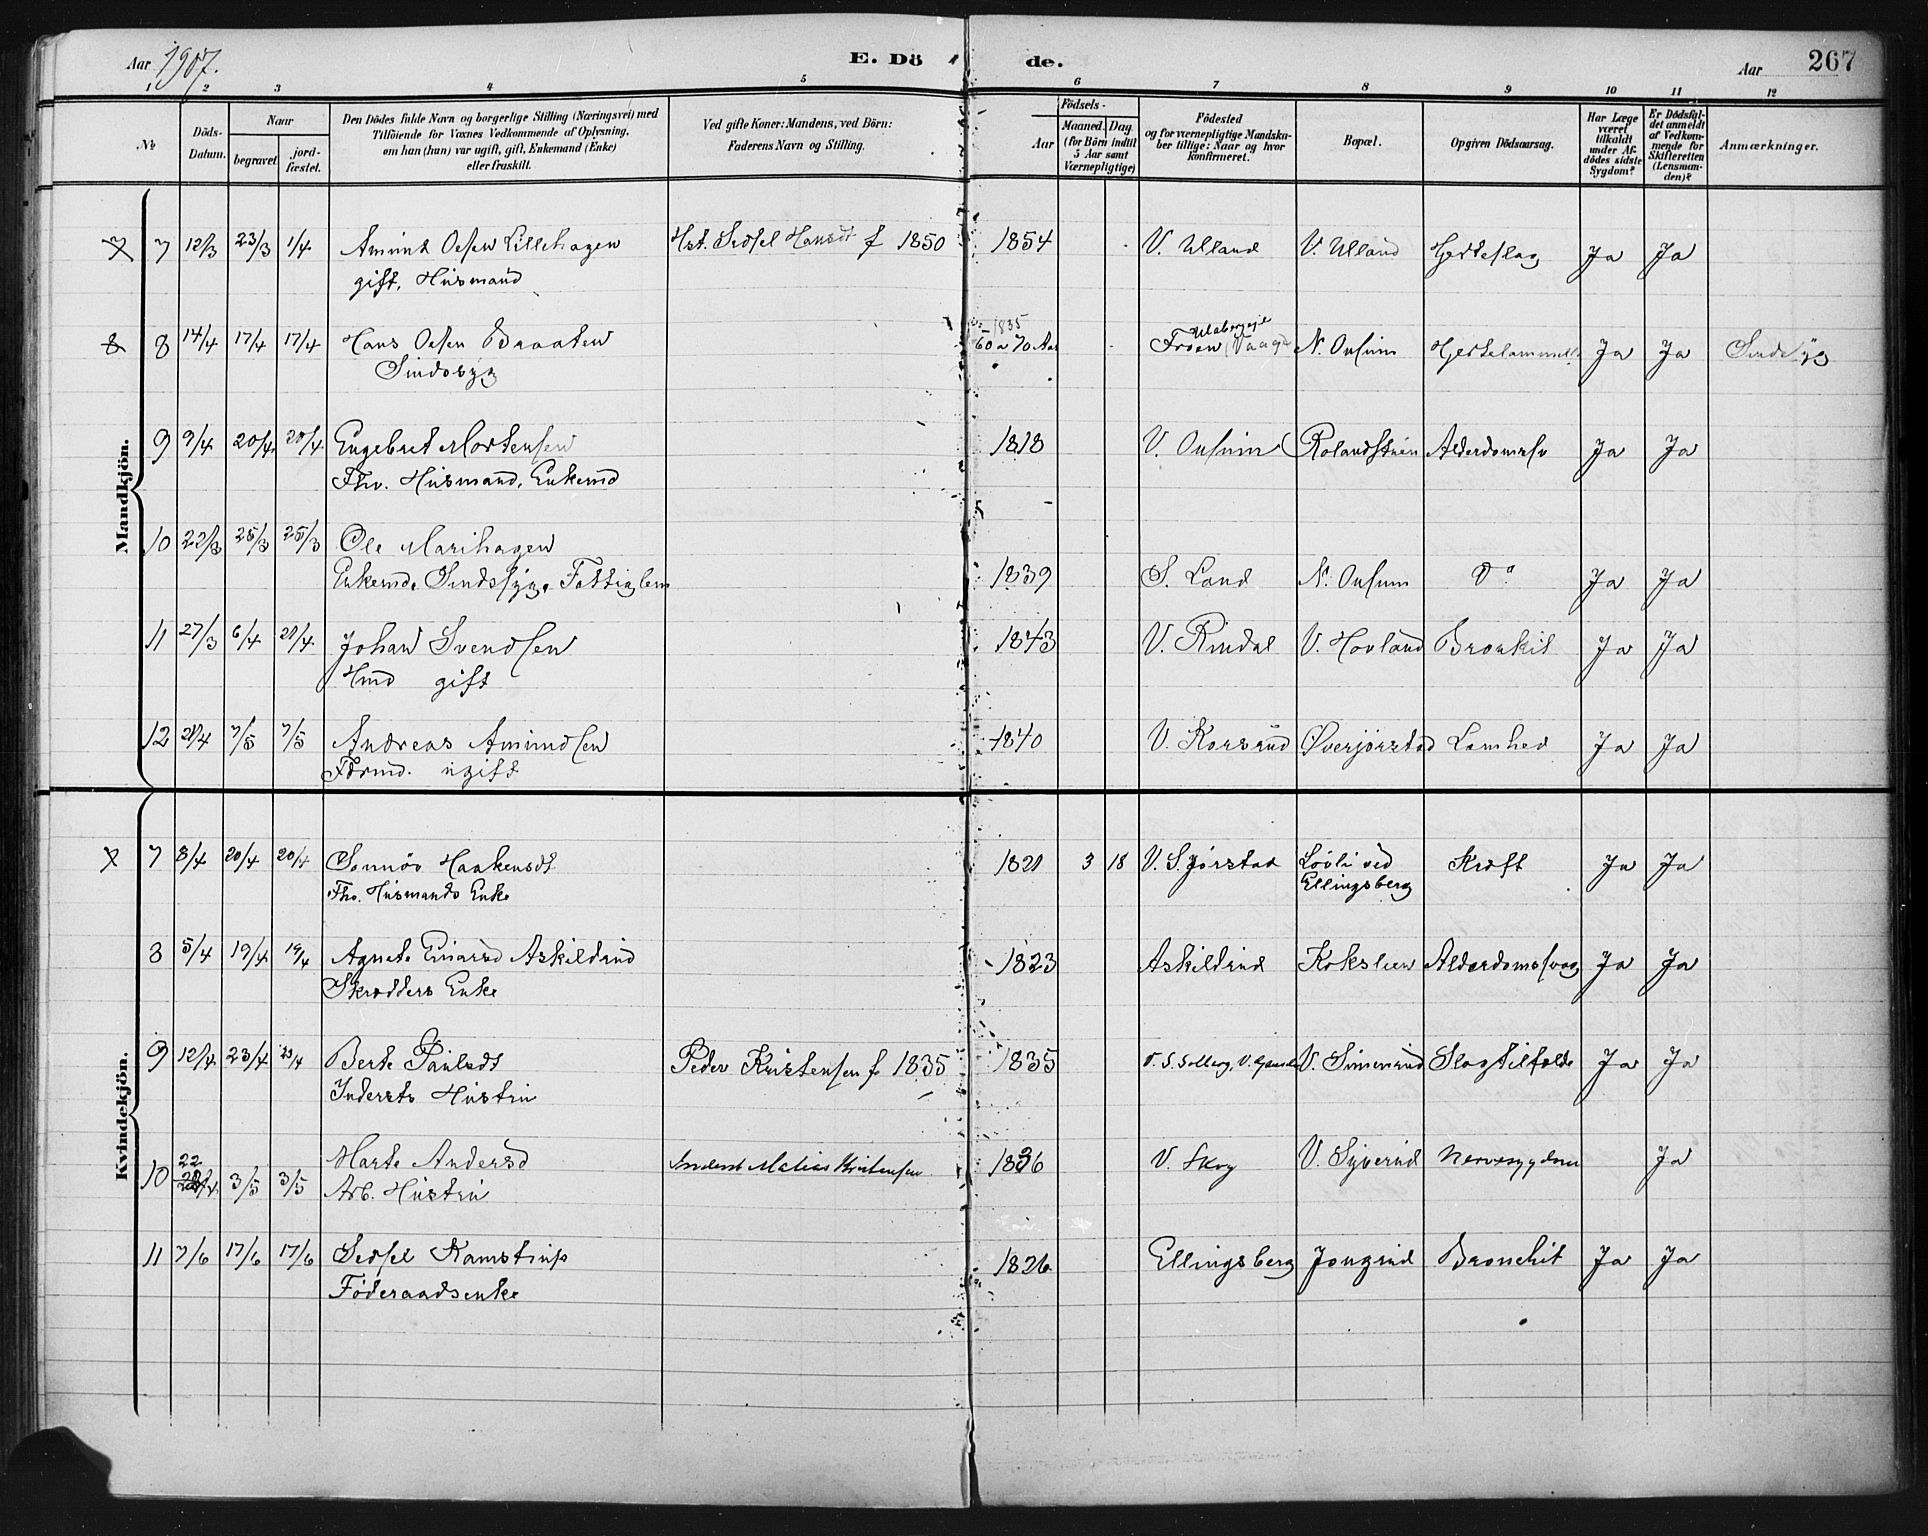 Aar 1907.
E. Dö
de.
Aar
267
1 2 3 4 5 6 7 8 9 10 11 12
No
Döds-Datum.
Naar
begravet.
jord-fæstet.
Den Dödes fulde Navn og borgerlige Stilling (Næringsvei) med
Tilföiende for Voxnes Vedkommende af Oplysning,
om han (hun) var ugift, gift, Enkemand (Enke)
eller fraskilt.
Ved gifte Koner: Mandens, ved Börn:
Faderens Navn og Stilling.
Födsels-
Aar
Maaned. Dag
(for Börn indtil
5 Aar samt
Værnepligtige)
Födested
og for værnepligtige Mandska-
ber tillige: Naar og hvor
konfirmeret.
Bopæl.
Opgiven Dödsaarsag.
Har Læge
været
tilkaldt
under Af-
dödes sidste
Sygdom?
Er Dödsfal-
det anmeldt
af Vedkom-
mende for
Skifteretten
(Lensman-
den)?
Anmærkninger.
Mandkjön.
7 12/3 23/3 1/4 Amund Olsen Lillehagen Hst. Sidsel Hansdt f 1850 1854 V. Ulland V. Ulland Hjerteslag Ja Ja
gift, Husmand
1835
8 14/4 17/4 17/4 Hans Olsen Braaten 60 a 70 Aar Froen Vaage N. Oulum Ja Ja
Sindssyg
9 9/4 20/4 20/4 Engebret Mortensen 1818 V. Oulum Ja Ja
Fhv. Husmand, Enkemd
10 22/3 25/3 25/3 Ole Marihagen
Enkemd. Sindssyg. Fattiglem 1839 S. Land N. Oulum Do Ja Ja
11 27/3 6/4 21/4 Johan Svendsen 1843 V. Rindal V. Hovland Bronkit Ja Ja
Hmd gift
12 21/4 7/5 7/5 Andreas Amundsen 1840 V. Korsrud Øverjørstad Lamhed Ja Ja
ugift
Kvindekjön.
7 8/4 20/4 20/4 Sønnöv Haakensdt 1821 3 18 V. S. Jørstad Lövli ved Kræft Ja Ja
Fhv. Husmands Enke Ellingsberg
8 5/4 19/4 19/4 Agnete Einarsd Askildrud 1823 Askildrud Kokslien Alderdomssvag Ja Ja
Skrædders Enke
9 12/4 23/4 23/4 Berte Paulsdt Peder Kristensen f 1835 1835 V. Simenrud Slagtilfælde Ja Ja
Indersts Hustru
22
10 28/4 3/5 3/5 Marte Andersd Inderst Matias Kristensen 1836 V. Skog V. Syverud Nervesygdom Ja
Arb. Hustru
11 7/6 17/6 17/6 Sidsel Kamstrup 1826 Ellingsberg Jongrud Bronchit Ja Ja
Föderaadsenke